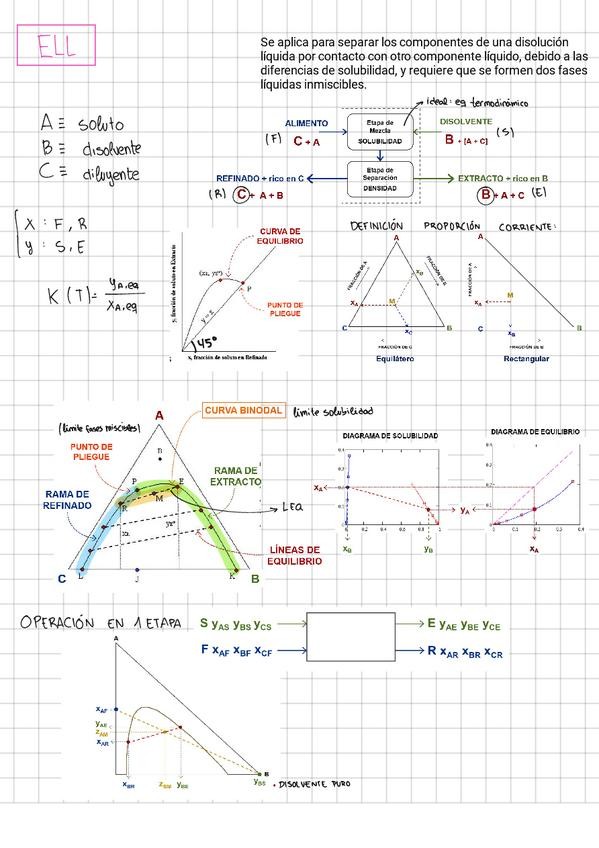 ELL
Se aplica para separar los componentes de una disolución
líquida por contacto con otro componente líquido, debido a las
diferencias de solubilidad, y requiere que se formen dos fases
líquidas inmiscibles.
A ≡ soluto
B ≡ disolvente
C ≡ diluyente
ideal: eq termodinámico
ALIMENTO
(F) C + A
Etapa de
Mezcla
SOLUBILIDAD
DISOLVENTE
B + [A + C] (S)
REFINADO + rico en C
(R) C + A + B
Etapa de
Separación
DENSIDAD
EXTRACTO + rico en B
B + A + C (E)
X : F, R
y : S, E
K (T) = yA,eq / xA,eq
CURVA DE
EQUILIBRIO
PUNTO DE
PLIEGUE
P
y = x
45°
y, fracción de soluto en Extracto
x, fracción de soluto en Refinado
DEFINICIÓN PROPORCIÓN CORRIENTE:
A
FRACCIÓN DE A
FRACCIÓN DE B
xA
xB
M
C
xC
B
FRACCIÓN DE C
Equilátero
A
FRACCIÓN DE A
xA
M
C
xB
B
FRACCIÓN DE B
Rectangular
CURVA BINODAL
límite solubilidad
(límite fases miscibles)
A
PUNTO DE
PLIEGUE
RAMA DE
EXTRACTO
RAMA DE
REFINADO
P
E
M
R
LEQ
LÍNEAS DE
EQUILIBRIO
C
L
J
K
B
DIAGRAMA DE SOLUBILIDAD
xA
xB
yB
yA
DIAGRAMA DE EQUILIBRIO
xA
OPERACIÓN EN 1 ETAPA
S yAS yBS yCS
E yAE yBE yCE
F xAF xBF xCF
R xAR xBR xCR
A
xAF
yAE
zAM
xAR
xBR
zBM
yBE
B
yBS
• DISOLVENTE PURO